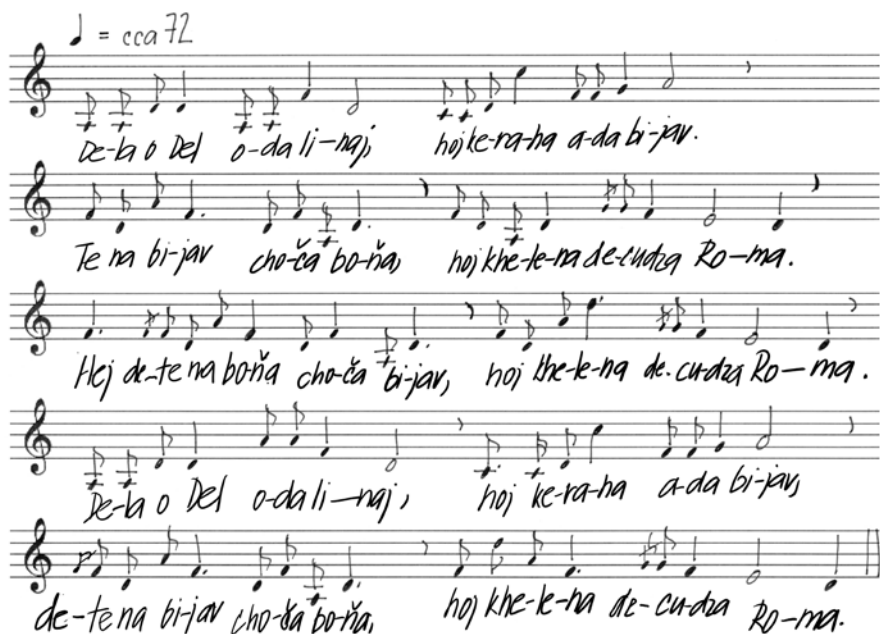 ♩ = cca 72
De-la o Del o-da li-naj, hoj ke-ra-ha a-da bi-jav.
Te na bi-jav cho-ča bo-ňa, hoj khe-le-na de-cu-dza Ro-ma.
Hej de-te na bo-ňa cho-ča bi-jav, hoj khe-le-na de-cu-dza Ro-ma.
De-la o Del o-da li-naj, hoj ke-ra-ha a-da bi-jav,
de-te na bi-jav cho-ča bo-ňa, hoj khe-le-na de-cu-dza Ro-ma.